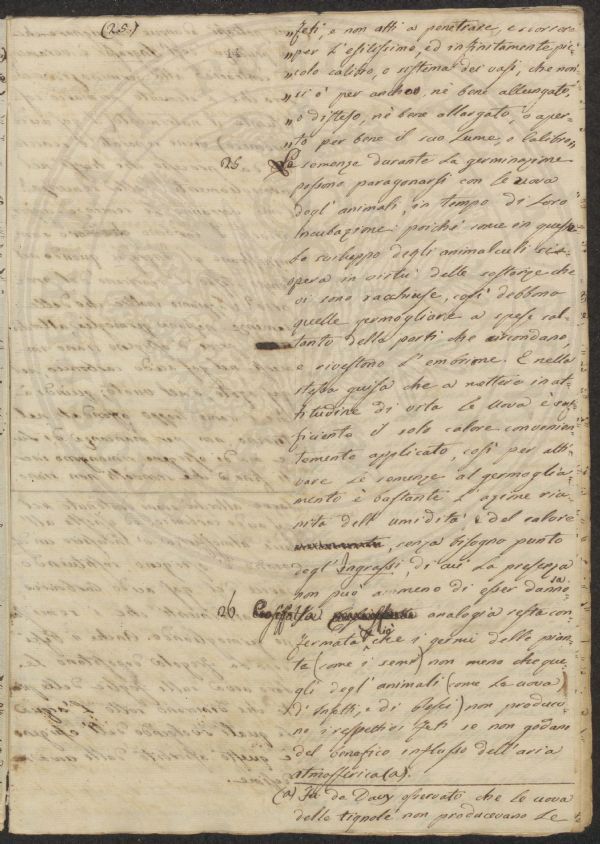 (25.)
„feti, e non atti a penetrare, e scorrere
„per l'esilissimo, ed infinitamente pic-
„colo calibro, o sistema dei vasi, che non
„si è per anche, nè bene allungato,
„o disteso, nè bene allargato, o aper-
„to per bene il suo lume, o calibro„
25 Le semenze durante la germinazione
possono paragonarsi con le uova
degl'animali, in tempo di loro
Incubazione; poichè come in queste
lo sviluppo degli animalculi si
opera in virtù delle sostanze che
vi sono racchiuse, così debbono
quelle germogliare a spese sol-
tanto delle parti che circondano,
e rivestono l'embrione. E nella
stessa guisa che a mettere in at-
titudine di vita le uova è suf-
ficiente il solo calore convenien-
temente applicato, così per atti-
vare le semenze al germoglia-
mento è bastante l'azione riu-
nita dell'umidità e del calore
senza bisogno punto
degl'Ingrassi, di cui la presenza
non può a meno di esser danno-
sa.
26 Cosiffatta analogia resta con-
fermata che i germi delle pian-
te (come i semi) non meno che que-
gli degl'animali (come le uova
d'Insetti, e di ) non produco-
no i respettivi feti se non godano
del benefico influsso dell'aria
atmosferica (a).
(a) Fu da Davy osservato che le uova
delle tignole non producevano le